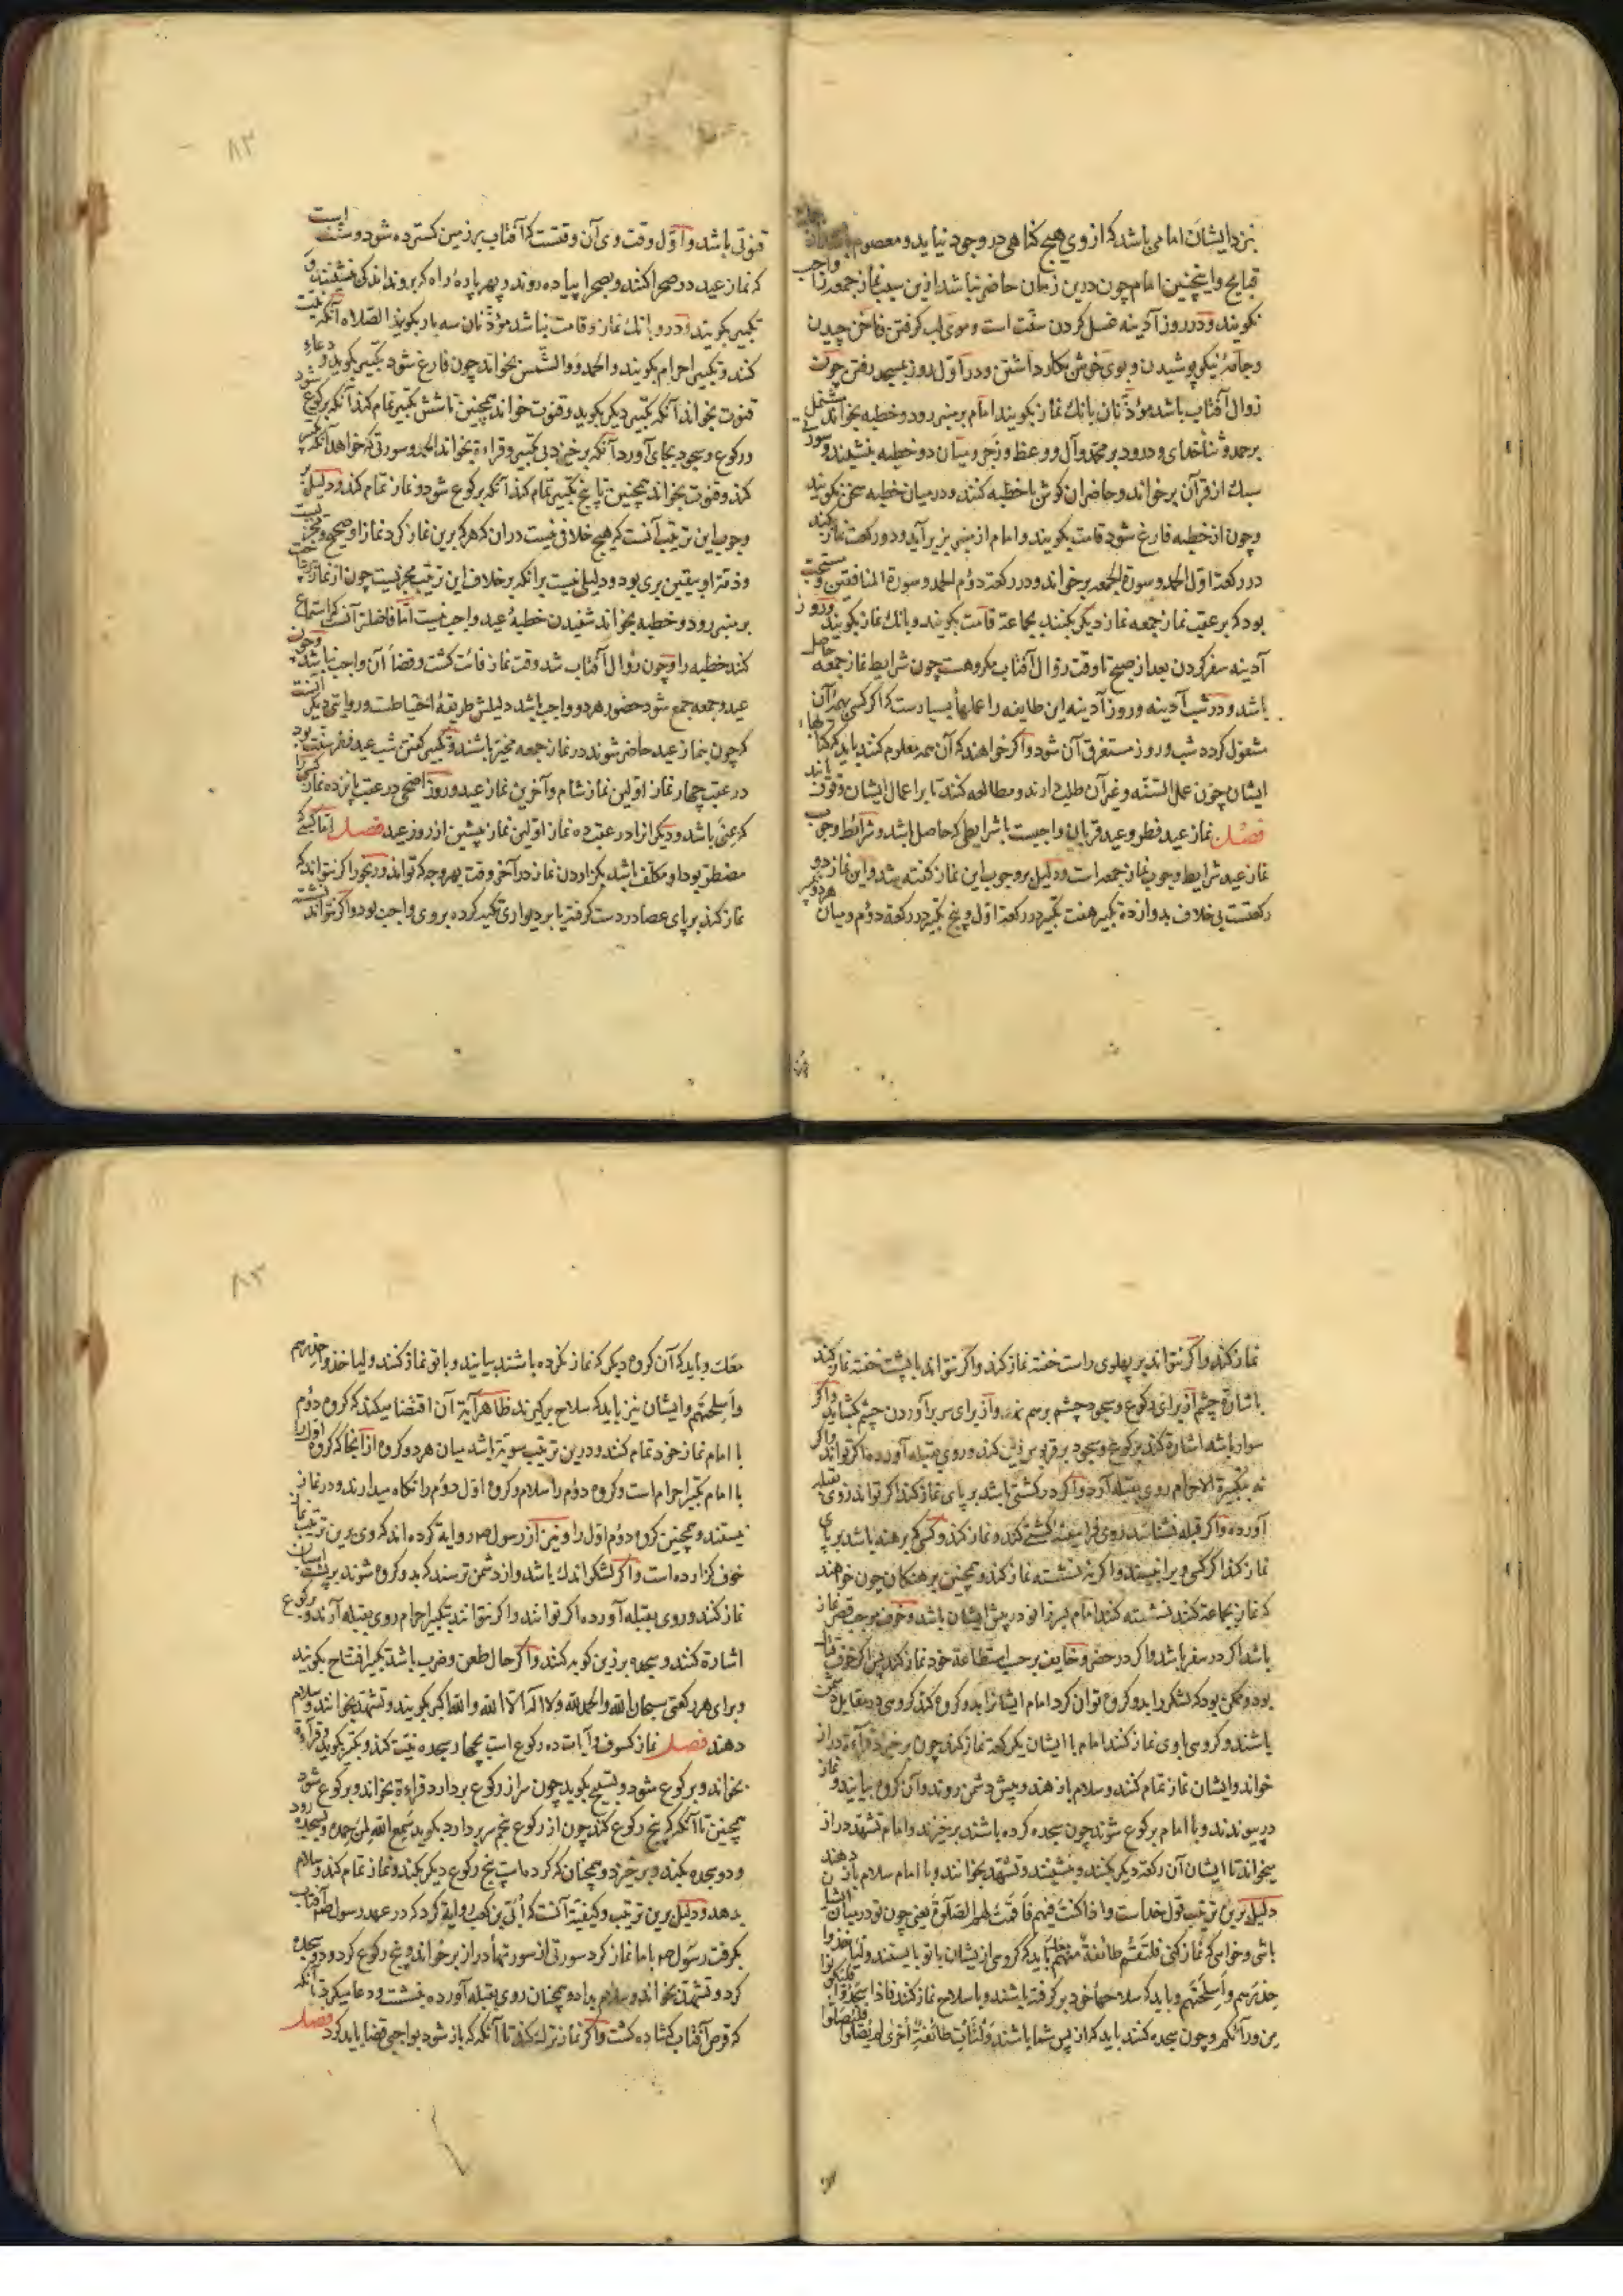 نزد ایشان امامی باشد که از وی هیچ کناهی در وجود نیاید و معصوم باشد از
قبایح و اینچنین امام چون درین زمان حاضر نباشد ازین سبب نماز جمعه را واجب
نکویند و در روز آدینه غسل کردن سنّت است و موی لب کرفتن و ناخن چیدن
و جامهٔ نیکو پوشیدن و بوی خوش بکار داشتن و در اوّل روز بمسجد رفتن چون
زوال آفتاب باشد مؤذّنان بانک نماز بکویند امام بر منبر رود و خطبه بخواند مشتمل
بر حمد و ثناء خدای و درود بر محمّد و آل و وعظ و زجر و میان دو خطبه بنشیند و سورتی
سبک از قرآن برخواند و حاضران کوش با خطبه کنند و در میان خطبه سخن نکویند
و چون از خطبه فارغ شود قامت بکویند و امام از منبر بزیر آید و دو رکعت نماز بکند
در رکعة اوّل الحمد و سورة الجمعه برخواند و در رکعة دوّم الحمد و سورة المنافقین و مستحب
بود که بر عقب نماز جمعه نماز دیکر بکنند بجماعة قامت بکویند و بانک نماز نکویند و روز
آدینه سفر کردن بعد از صبح تا وقت زوال آفتاب مکروهست چون شرایط نماز جمعه حاصل
باشد و در شب آدینه و روز آدینه این طایفه را عملها بسیارست که اکر کسی بهمه آن
مشغول کردد شب و روز مستغرق آن شود و اکر خواهند که آن همه معلوم کنند باید که کتابها
ایشان چون عمل السنّه و غیر آن طلب دارند و مطالعه کنند تا بر اعمال ایشان وقوف یابند
فصل نماز عید فطر و عید قربان واجبست با شرایطی که حاصل باشد و شرائط وجوب
نماز عید شرایط وجوب نماز جمعه است و دلیل بر وجوب این نماز کفته شد و این نماز دو
رکعتست بی خلاف بدوازده تکبیر هفت تکبیر در رکعة اوّل و پنج تکبیر در رکعة دوّم و میان هر دو تکبیر
قنوتی باشد و اوّل وقت وی آن وقتست که آفتاب بر زمین کسترده شود و سنّت است
که نماز عید در صحرا کنند و بصحرا پیاده روند و بهر پارهٔ راه که بروند اندکی بنشینند و
تکبیر بکویند و درو بانک نماز و قامت نباشد مؤذّنان سه بار بکویند الصّلاه آنکه نیّت
کنند و تکبیر احرام بکویند و الحمد و والشّمس بخواند چون فارغ شود تکبیر بکوید و دعاء
قنوت بخواند آنکه تکبیر دیکر بکوید و قنوت خواند همچنین تا شش تکبیر تمام کند آنکه برکوع شود
و رکوع و سجود بجای آورد آنکه برخیزد بی تکبیر و قراءة بخواند الحمد و سورتی که خواهد آنکه تکبیر
کند و قنوت بخواند همچنین تا پنج تکبیر تمام کند آنکه برکوع شود و نماز تمام کند و دلیل بر
وجوب این ترتیب آنست که هیچ خلافی نیست دران که هر که برین نماز کرد نماز او صحیح و مجزیست
و ذمّة او بیقین بری بود و دلیلی نیست برانکه بر خلاف این ترتیب مجزیست چون از نماز بپرداخت
بر منبر رود و خطبه بخواند شنیدن خطبهٔ عید واجب نیست امّا فاضلتر آنست که استماع
کند خطبه را و چون زوال آفتاب شد وقت نماز فائت کشت و قضاء آن واجب نباشد و چون
عید و جمعه جمع شود حضور هر دو واجب باشد دلیلش طریقهٔ احتیاطست و روایتی دیکر آنست
که چون بنماز عید حاضر شوند در نماز جمعه مخیّر باشند و تکبیر کفتن شب عید فطر سنّت بود
در عقب چهار نماز اوّلین نماز شام و آخرین نماز عید و روز اضحی در عقب پانزده نماز کسی را
که بمنی باشد و دیکرانرا در عقب ده نماز اوّلین نماز پیشین از روز عید فصل امّا کسی که
مضطر بود او مکلّف باشد بکزاردن نماز در آخر وقت بهر وجه که تواند و رنجور اکر نتواند که
نماز کند بر پای عصا در دست کرفته یا بر دیواری تکیه کرده بر وی واجب بود و اکر نتواند نشسته
نماز کند و اکر نتواند بر پهلوی راست خفته نماز کند و اکر نتواند با پشت خفته نماز کند
باشارة چشم از برای رکوع و سجود چشم برهم نهد و از برای سر برآوردن چشم کشاید و اکر
سوار باشد اشارة کند برکوع و سجود بر قربوس زین کند و روی بقبله آورده اکر تواند و اکر
نه بتکبیرة الاحرام روی بقبله آرد و اکر در کشتی باشد بر پای نماز کند اکر تواند روی بقبله
آورده و اکر قبله نشناسد روی فرا سینهٔ کشتی کند و نماز کند و کسی که برهنه باشد بر پای
نماز کند اکر کسی ویرا نبیند و اکر نه نشسته نماز کند و همچنین برهنکان چون خواهند
که نماز بجماعة کنند نشسته کنند امام بسر زانو در پیش ایشان باشد و خوف موجب قصر نماز
باشد اکر در سفر باشد و اکر در حضر و خایف بر حسب استطاعة خود نماز کند پس اکر خوف قتال
بود و ممکن بود که لشکر را بدو کروه توان کرد امام ایشانرا بدو کروه کند کروهی در مقابل دشمن
باشند و کروهی با وی نماز کنند امام با ایشان یک رکعة نماز کند چون برخیزد قراءة دراز
خواند و ایشان نماز تمام کنند و سلام باز دهند و پیش دشمن روند و آن کروه بیایند و نماز
در پیوندند و با امام برکوع شوند چون سجده کرده باشند برخیزند و امام تشهّد دراز
میخواند تا ایشان آن رکعة دیکر بکنند و بنشینند و تشهّد بخوانند و با امام سلام باز دهند
دلیل برین ترتیب قول خداست و اذا کنت فیهم فاقمت لهم الصلوة یعنی چون تو در میان ایشان
باشی و خواهی که نماز کنی فلتقم طائفة منهم معک باید که کروهی از ایشان با تو بایستند و لیاخذوا
حذرهم و اسلحتهم و باید که سلاحهاء خود بر کرفته باشند و با سلاح نماز کنند فاذا سجدوا فلیکونوا
من ورائکم و چون سجده کنند باید که از پس شما باشند و لتأت طائفة اخری لم یصلّوا فلیصلّوا
معک و باید که آن کروه دیکر که نماز نکرده باشند بیایند و با تو نماز کنند و لیاخذوا حذرهم
و اسلحتهم و ایشان نیز باید که سلاح بر کیرند ظاهر آیة آن اقتضا میکند که کروه دوّم
با امام نماز خود تمام کنند و درین ترتیب سویّة باشد میان هر دو کروه از آنجا که کروه اوّل را
با امام تکبیر احرام است و کروه دوّم را سلام و کروه اوّل دوّم را نکاه میدارند و در نماز
نیستند و همچنین کروه دوّم اوّل را و نیز از رسول صم روایة کرده اند که وی برین ترتیب نماز
خوف کزارده است و اکر لشکر اندک باشد و از دشمن ترسند که بدو کروه شوند بر پشت اسبان
نماز کنند و روی بقبله آورده اکر توانند و اکر نتوانند بتکبیر احرام روی بقبله آرند و برکوع
اشارة کنند و سجده بر زین کوبه کنند و اکر حال طعن و ضرب باشد تکبیر افتتاح بکویند
و برای هر رکعتی سبحان الله و الحمد لله و لا اله الا الله و الله اکبر بکویند و تشهّد بخوانند و سلام
دهند فصل نماز کسوف و آیات ده رکوع است بچهار سجده نیّت کند و تکبیر بکوید و قراءة
بخواند و برکوع شود و تسبیح بکوید چون سر از رکوع بردارد قراءة بخواند و برکوع شود
همچنین تا آنکه که پنج رکوع کند چون از رکوع پنجم سر بردارد بکوید سمع الله لمن حمده و بسجده رود
و دو سجده بکند و برخیزد و همچنان که کرده است پنج رکوع دیکر بکند و نماز تمام کند و سلام
بدهد و دلیل برین ترتیب و کیفیّة آنست که اُبیّ بن کعب روایة کرد که در عهد رسول صم آفتاب
بکرفت رسول صم با ما نماز کرد سورتی از سورتهاء دراز برخواند و پنج رکوع کرد و دو سجده
کرد و تشهّد بخواند و سلام بداد و همچنان روی بقبله آورده بنشست و دعا میکرد تا آنکه
که قرص آفتاب کشاده کشت و اکر نماز ترک کند تا آنکه که باز شود بواجبی قضا باید کرد فصل